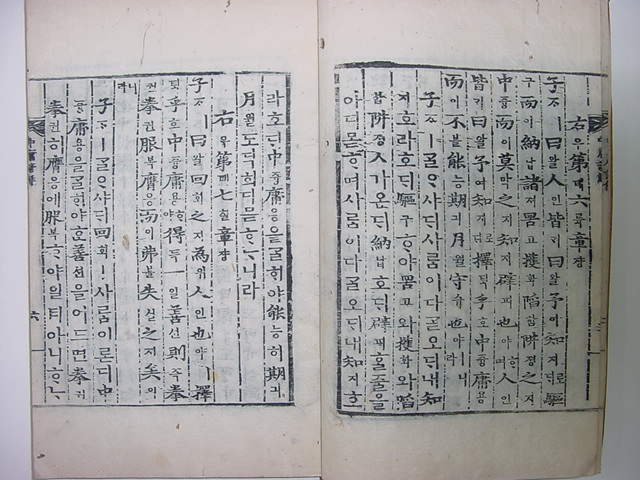 右우第뎨六륙章쟝
子ᄌᆞㅣ曰왈人인皆ᄀᆡ曰왈予여知지로ᄃᆡ驅
구而이納납諸져罟고擭화陷함阱졍之지
中듕而이莫막之지知지辟피也야ᄒᆞ며人인
皆ᄀᆡ曰왈予여知지로ᄃᆡ擇ᄐᆡᆨ乎호中듕庸용
而이不블能능期긔月월守슈也야ㅣ니라
子ᄌᆞㅣᄀᆞᆯᄋᆞ샤ᄃᆡ사ᄅᆞᆷ이다ᄀᆞᆯ오ᄃᆡ내知
지호라호ᄃᆡ驅구ᄒᆞ야罟고와擭화와陷
함阱졍ㅅ가온ᄃᆡ納납호ᄃᆡ辟피ᄒᆞᆯ줄을
아디몯ᄒᆞ며사ᄅᆞᆷ이다ᄀᆞᆯ오ᄃᆡ내知지호
라호ᄃᆡ中듕庸용을ᄀᆞᆯᄒᆡ야能능히期긔
月월도딕희디몯ᄒᆞᄂᆞ니라
右우第뎨七칠章쟝
子ᄌᆞㅣ曰왈回회之지爲위人인也야ㅣ擇
ᄐᆡᆨ乎호中듕庸용ᄒᆞ야得득一일善션則즉拳
권拳권服복膺응而이弗블失실之지矣의
니라
子ᄌᆞㅣᄀᆞᆯᄋᆞ샤ᄃᆡ回회ㅣ사ᄅᆞᆷ이로ᄃᆡ中
듕庸용을ᄀᆞᆯᄒᆡ야善션을어드면拳권
拳권히膺응에服복ᄒᆞ야일티아니ᄒᆞᄂᆞ
中庸諺解
六